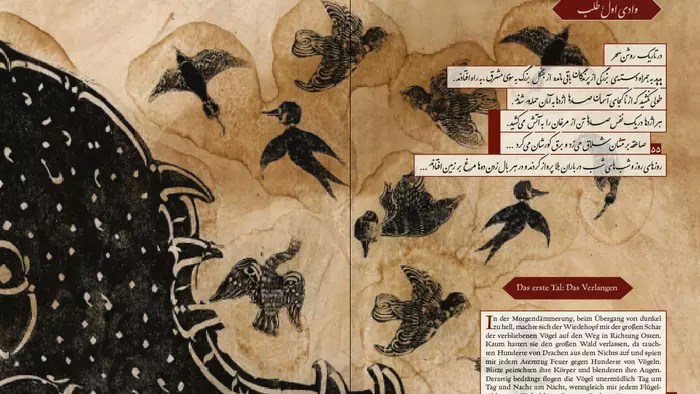 وادی اول طلب
در تاریک روشن سحر
به همراه دسته‌ی بزرگی از پرندگان باقی مانده از جنگل بزرگ به سوی مشرق، به راه افتادند.
طولی نکشید که از ناکجای آسمان صدها اژدها به آنان حمله‌ور شدند.
هر اژدها در یک نفس صدها تن از مرغان را به آتش می‌کشید.
صاعقه بر تنشان شلاق می‌زد و برق کورشان می‌کرد ...
۵۵
روزهای روز و شب‌های شب در باران بلا پرواز کردند و در هر بال زدن ده‌ها مرغ بر زمین افتادند ...
Das erste Tal: Das Verlangen
In der Morgendämmerung, beim Übergang von dunkel
zu hell, machte sich der Wiedehopf mit der großen Schar
der verbliebenen Vögel auf den Weg in Richtung Osten.
Kaum hatten sie den großen Wald verlassen, da tauch-
ten Hunderte von Drachen aus dem Nichts auf und spien
mit jedem Atemzug Feuer gegen Hunderte von Vögeln.
Blitze peitschten ihre Körper und blendeten ihre Augen.
Derartig bedrängt flogen die Vögel unermüdlich Tag um
Tag und Nacht um Nacht, wenngleich mit jedem Flügel-